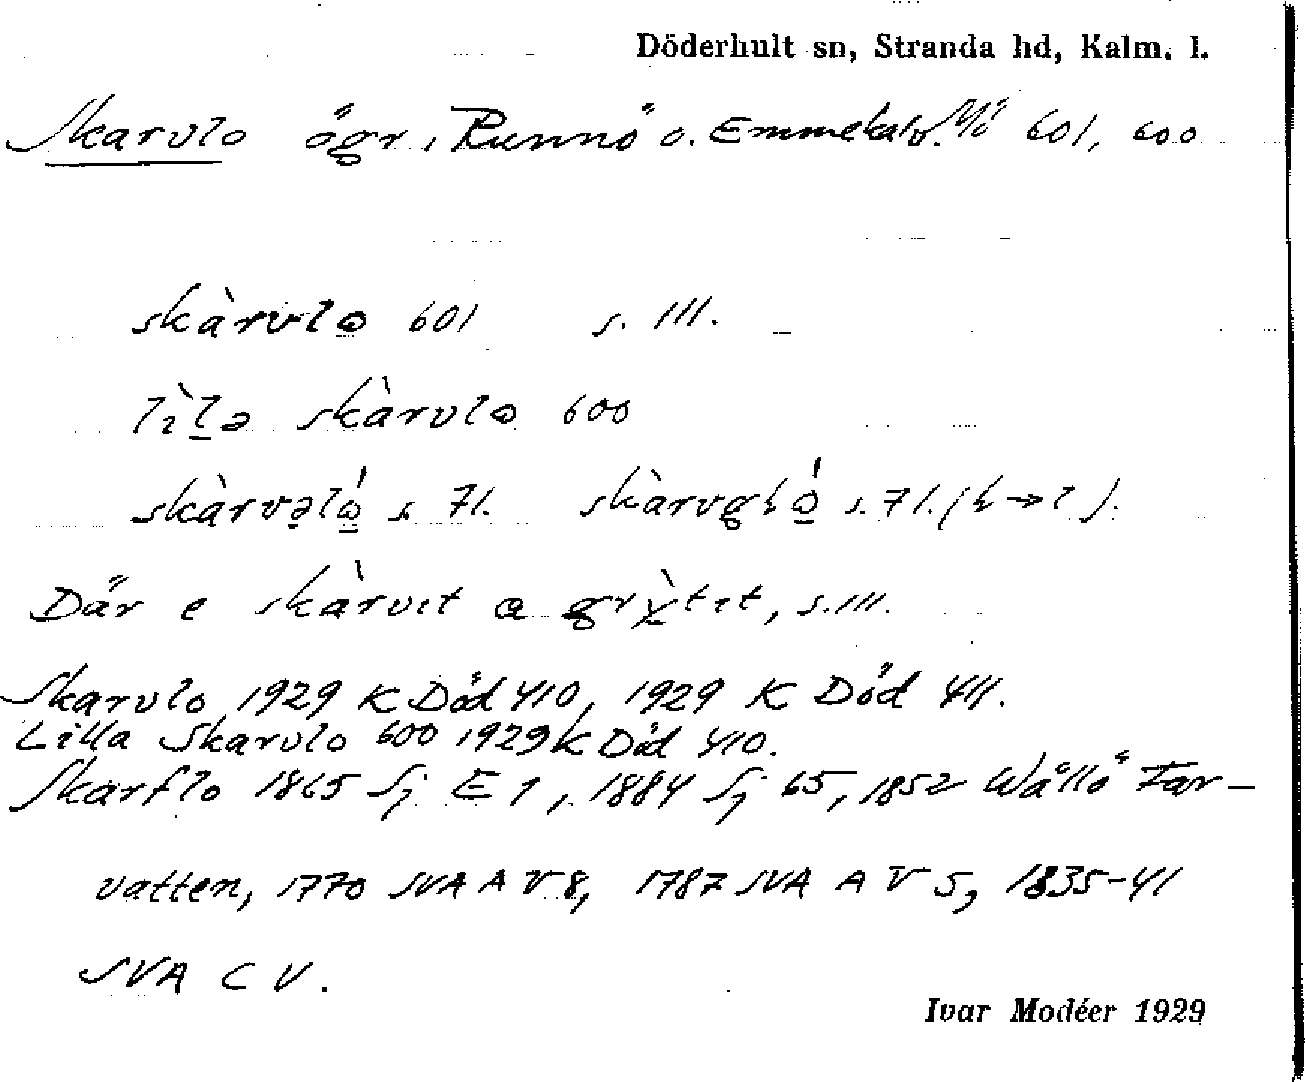 Döderhult sn, Stranda hd, Kalm. l.
Skarvlo ögr, Runnö o. Emmekalv. 601, 600
skàrvlo 601 s. 111.
lìlə skàrvlo 600
skàrvəló s. 71. skàrvgló s. 71.
Där e skàrvıt a grỳtıt, s. 111.
Skarvlo 1929 K Död 410, 1929 K Död 411.
Lilla Skarvlo 600 1929 K Död 410.
Skarflo 1865 Sj E 1, 1884 Sj 65, 1852 Wållö Far-
vatten, 1770 SVA A V 8, 1787 SVA A V 5, 1835-41
SVA C V.
Ivar Modéer 1929